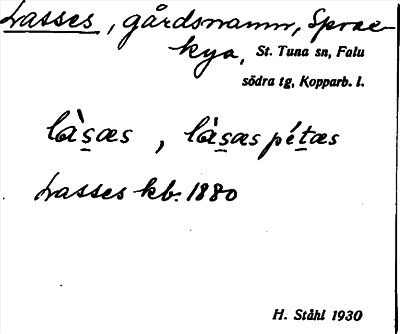 Lasses, gårdsnamn, Sprae-
kya, St. Tuna sn, Falu
södra tg, Kopparb. l.
làs̱æs, làs̱æs péṯæs
Lasses kb. 1880
H. Ståhl 1930